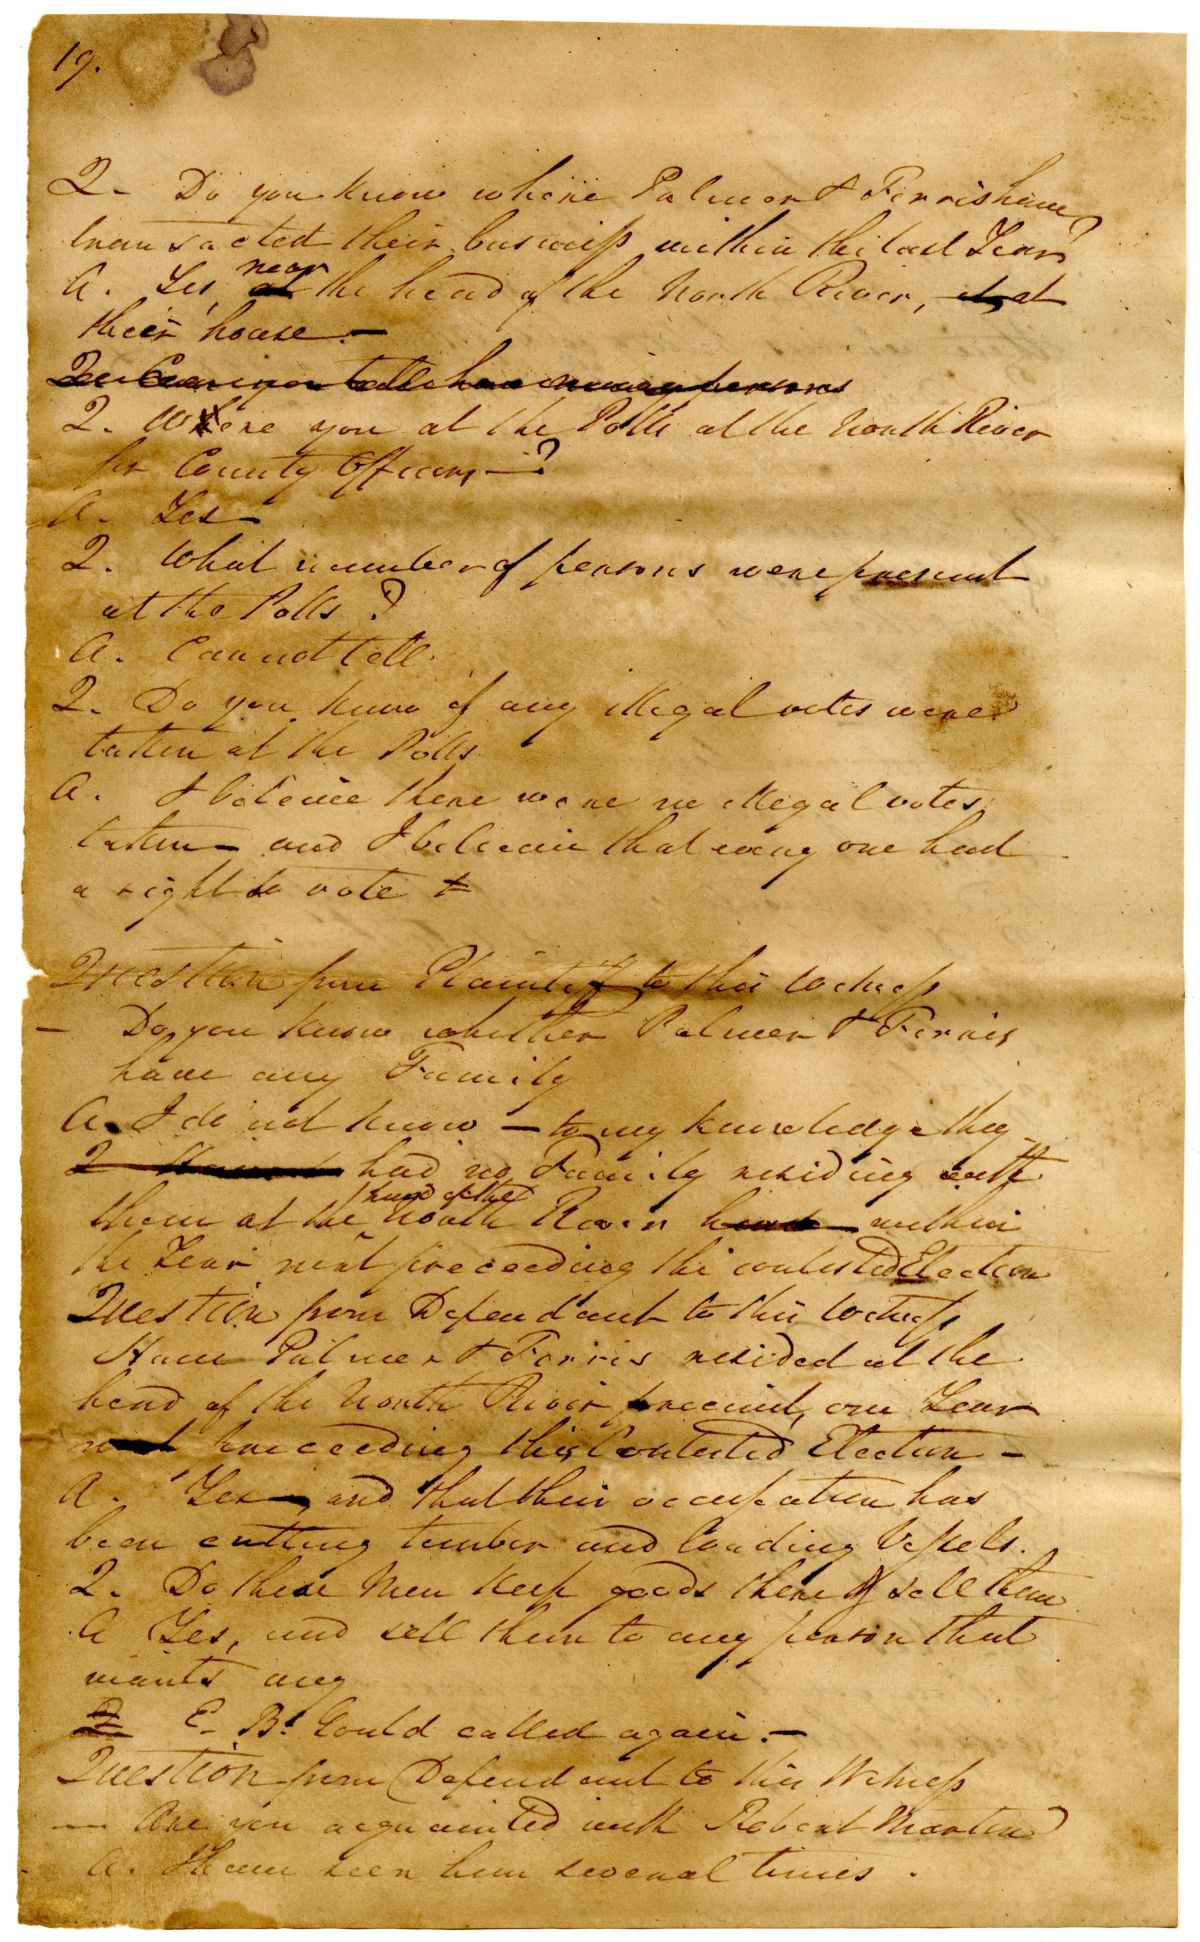 19.
Q- Do you know where Palmer & Ferris have
transacted their business within the last Year?
A. Yes, near at the head of the North River, at
their house.—
Can you tell how many persons
Q. Where you at the Polls at the North River
for County Officers,—?
A. Yes—
Q. What number of persons were present
at the Polls?
A. Can not tell.
Q. Do you know if any illegal votes were
taken at the Polls
A. I beleive there were no illegal votes
taken— and I beleive that every one had
a right to vote
Question from Plaintiff to this Witness
— Do you know whether Palmer & Ferris
have any Family
A. I do not know — to my knowledge they
Q had no Family residing with
them at the head of the North River within
the Year next preceeding this contested Election
Question from Defendant to this Witness
Have Palmer & Ferris resided at the
head of the North River precinct, one Year
next preceeding this Contested Election—
A. Yes— and that their occupation has
been cutting timber and loading Vessels.
Q. Do these Men keep goods there & sell them
A Yes, and sell them to any person that
wants any
Q E. B. Gould called again.—
Question from Defendant to this Witness
— Are you acquainted with Robert Martin
A. I have seen him several times.